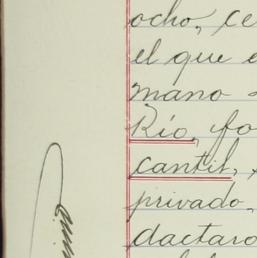 ocho, ce
el que e
mano
Río, fo
cantil,
privado.
dactaro